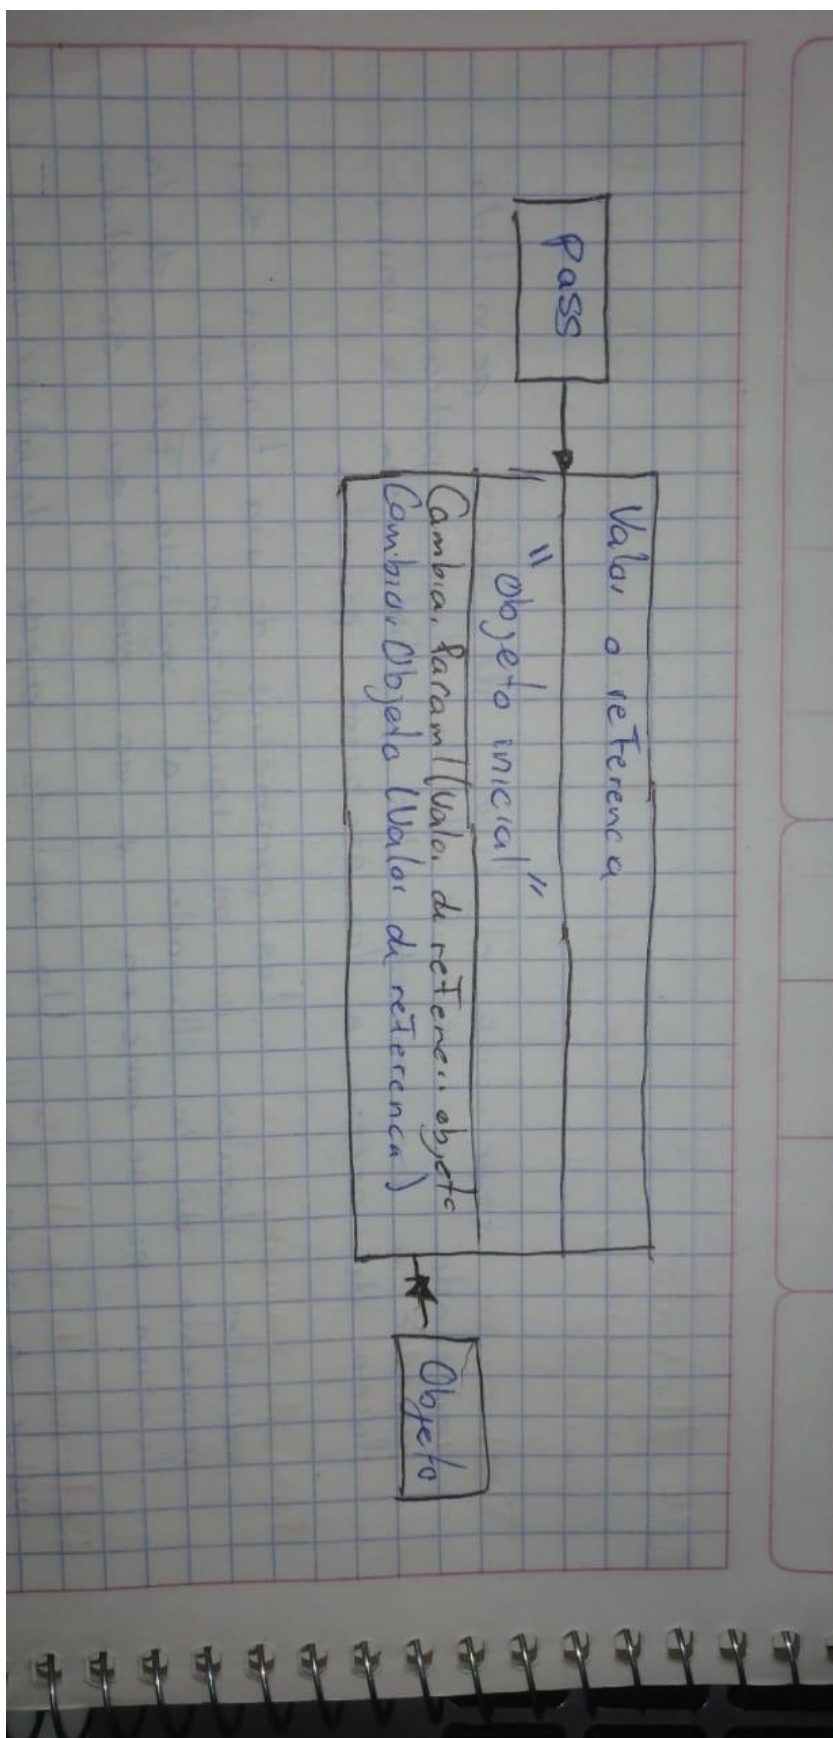 Pass
Valor o referenca
" Objeto inicial "
Cambiar Param1 (Valor de referen objeto
Cambiar Objeto (Valor de referenca)
Objeto